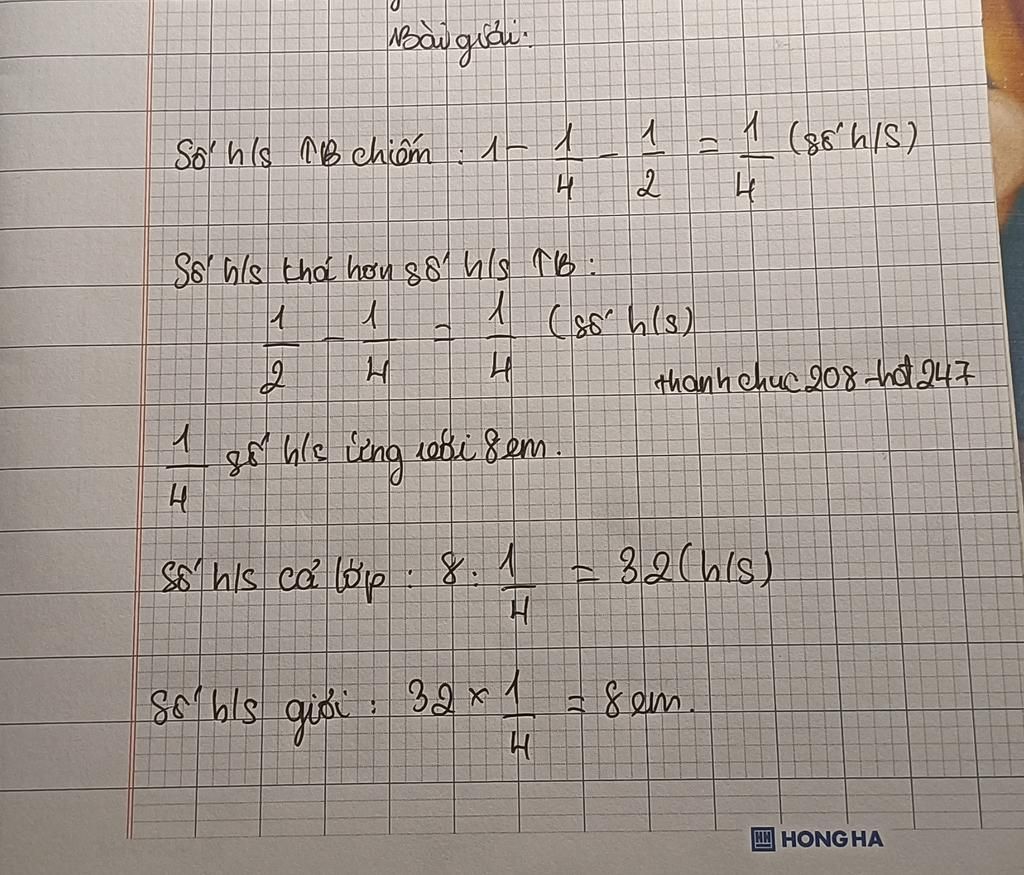 Bài giải:
Số h/s TB chiếm: 1 - 1/4 - 1/2 = 1/4 (số h/s)
Số h/s khá hơn số h/s TB:
1/2 - 1/4 = 1/4 (số h/s)
thanhchuc208-hot247
1/4 số h/s ứng với 8 em.
Số h/s cả lớp: 8 : 1/4 = 32 (h/s)
Số h/s giỏi: 32 × 1/4 = 8 em.
HH HONG HA